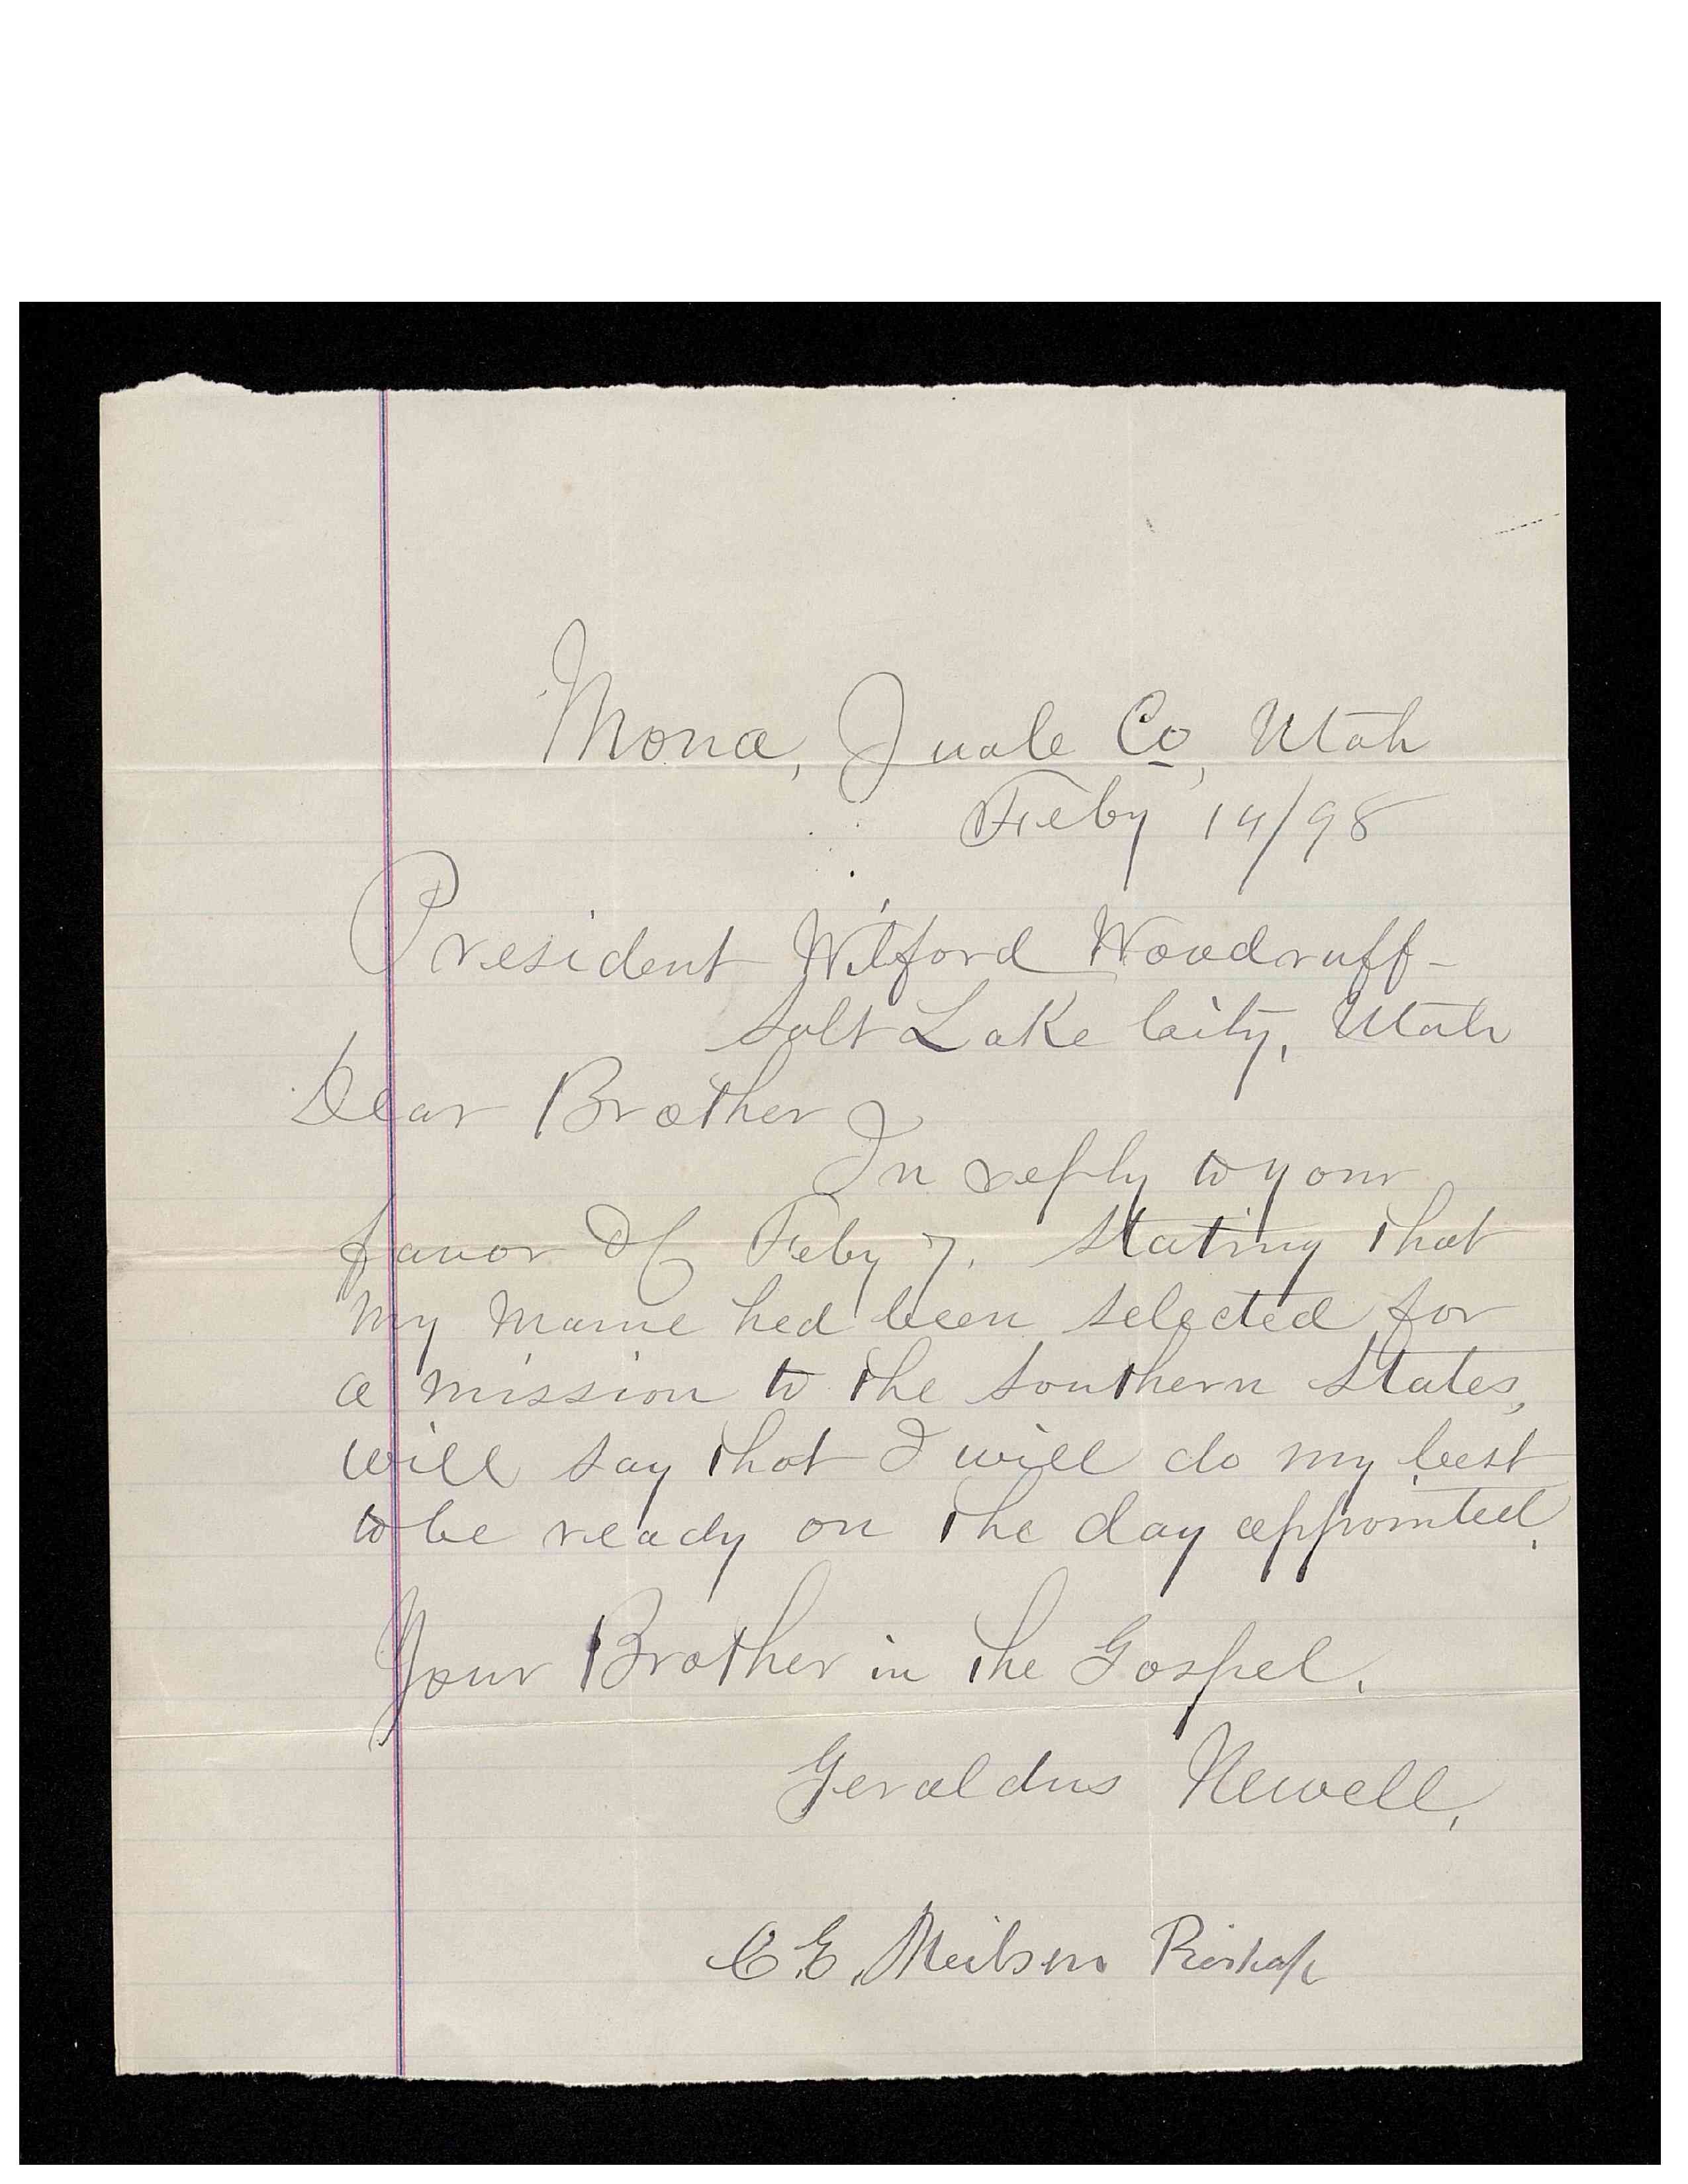 Mona, Juab Co, Utah
Feby 14/98
President Wilford Woodruff-
Salt Lake City, Utah
Dear Brother
In reply to your
favor of Feby 7. stating that
my name had been selected for
a mission to the southern States,
will say that I will do my best
to be ready on the day appointed.
Your Brother in the Gospel.
Geraldus Newell,
C E, Neilsen Bishop